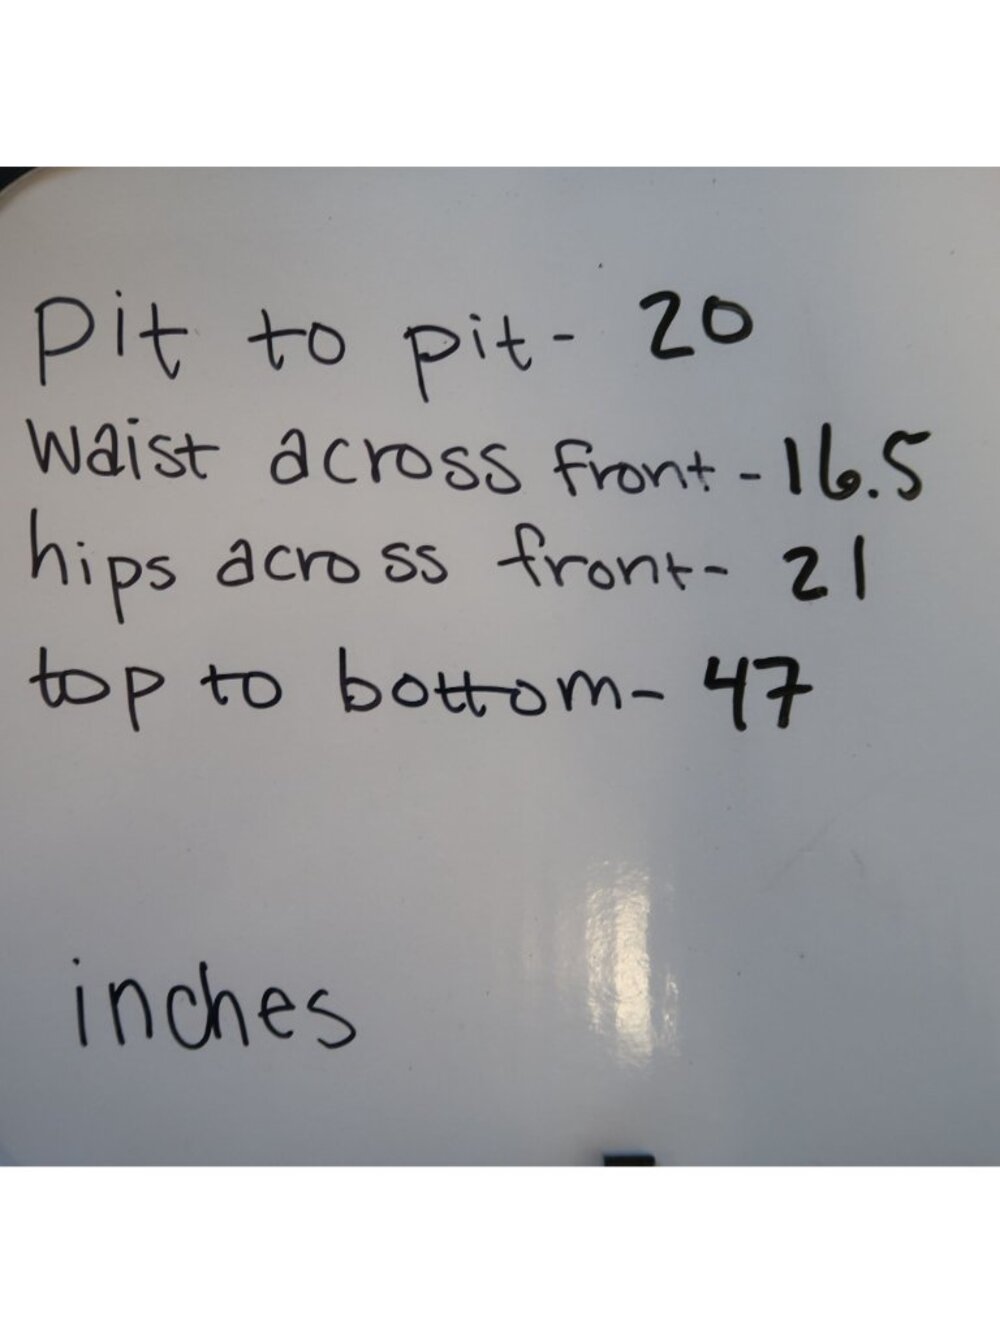 pit to pit- 20
waist across front-16.5
hips across front- 21
top to bottom- 47
inches